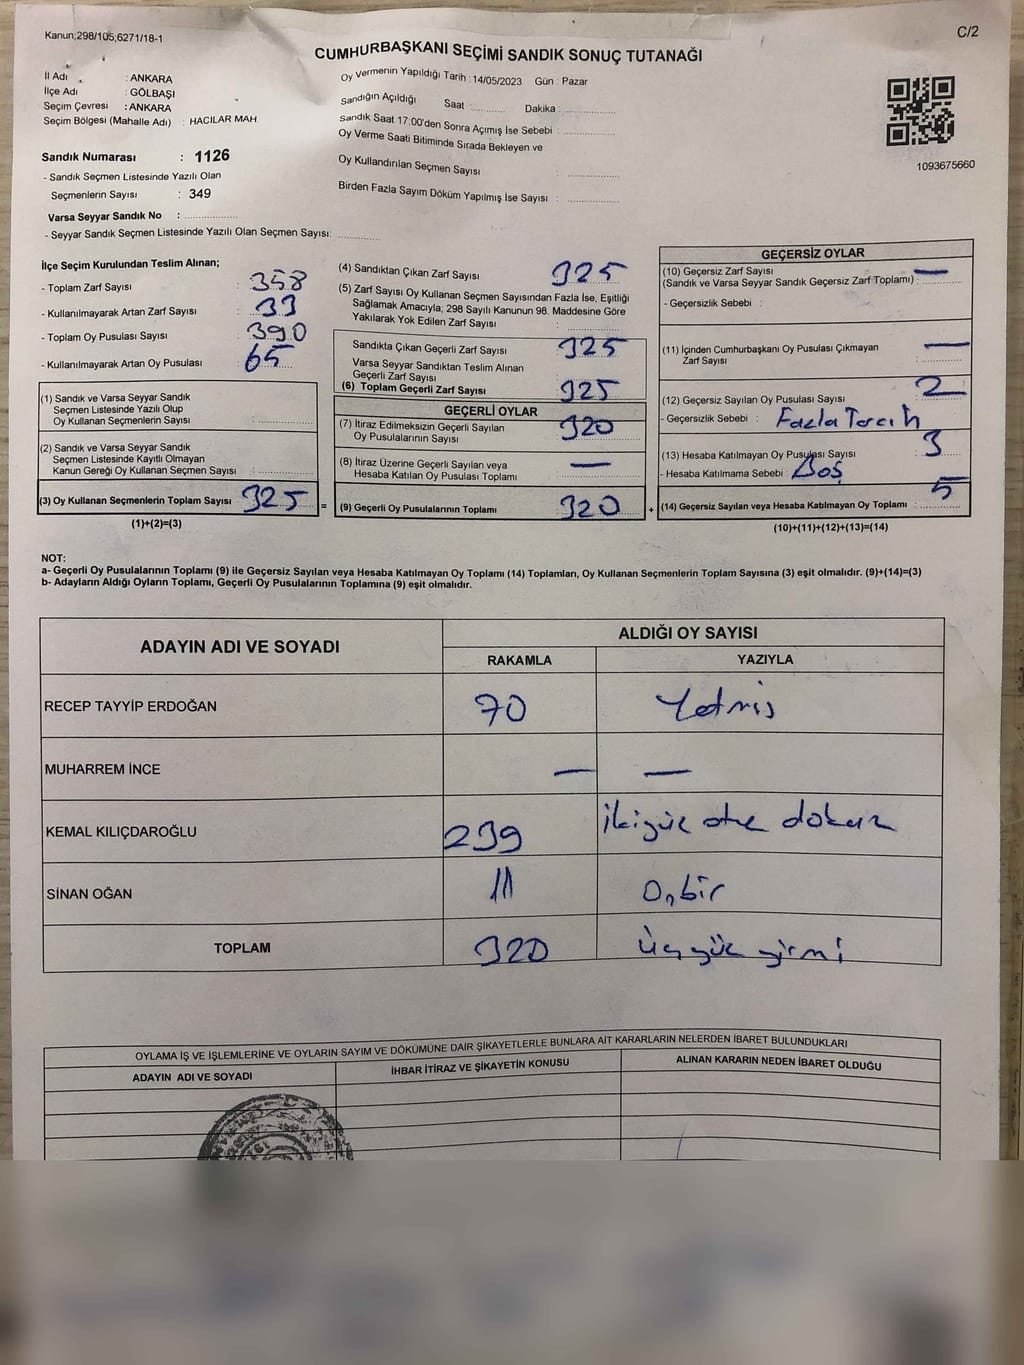 Kanun;298/105,6271/18-1
C/2
CUMHURBAŞKANI SEÇİMİ SANDIK SONUÇ TUTANAĞI
İl Adı : ANKARA
İlçe Adı : GÖLBAŞI
Seçim Çevresi : ANKARA
Seçim Bölgesi (Mahalle Adı) : HACILAR MAH.
Sandık Numarası : 1126
- Sandık Seçmen Listesinde Yazılı Olan
Seçmenlerin Sayısı : 349
Varsa Seyyar Sandık No :
- Seyyar Sandık Seçmen Listesinde Yazılı Olan Seçmen Sayısı:
Oy Vermenin Yapıldığı Tarih : 14/05/2023 Gün : Pazar
Sandığın Açıldığı Saat : Dakika :
Sandık Saat 17:00'den Sonra Açımış İse Sebebi :
Oy Verme Saati Bitiminde Sırada Bekleyen ve
Oy Kullandırılan Seçmen Sayısı :
Birden Fazla Sayım Döküm Yapılmış İse Sayısı :
1093675660
İlçe Seçim Kurulundan Teslim Alınan;
- Toplam Zarf Sayısı : 358
- Kullanılmayarak Artan Zarf Sayısı : 33
- Toplam Oy Pusulası Sayısı : 390
- Kullanılmayarak Artan Oy Pusulası : 65
(1) Sandık ve Varsa Seyyar Sandık
Seçmen Listesinde Yazılı Olup
Oy Kullanan Seçmenlerin Sayısı :
(2) Sandık ve Varsa Seyyar Sandık
Seçmen Listesinde Kayıtlı Olmayan
Kanun Gereği Oy Kullanan Seçmen Sayısı :
(3) Oy Kullanan Seçmenlerin Toplam Sayısı 325 =
(1)+(2)=(3)
(4) Sandıktan Çıkan Zarf Sayısı 325
(5) Zarf Sayısı Oy Kullanan Seçmen Sayısından Fazla İse, Eşitliği
Sağlamak Amacıyla; 298 Sayılı Kanunun 98. Maddesine Göre
Yakılarak Yok Edilen Zarf Sayısı :
Sandıkta Çıkan Geçerli Zarf Sayısı : 325
Varsa Seyyar Sandıktan Teslim Alınan
Geçerli Zarf Sayısı :
(6) Toplam Geçerli Zarf Sayısı 325
GEÇERLİ OYLAR
(7) İtiraz Edilmeksizin Geçerli Sayılan
Oy Pusulalarının Sayısı : 320
(8) İtiraz Üzerine Geçerli Sayılan veya
Hesaba Katılan Oy Pusulası Toplamı : —
(9) Geçerli Oy Pusulalarının Toplamı 320 +
GEÇERSİZ OYLAR
(10) Geçersiz Zarf Sayısı —
(Sandık ve Varsa Seyyar Sandık Geçersiz Zarf Toplamı) :
- Geçersizlik Sebebi :
(11) İçinden Cumhurbaşkanı Oy Pusulası Çıkmayan —
Zarf Sayısı
(12) Geçersiz Sayılan Oy Pusulası Sayısı 2
- Geçersizlik Sebebi : Fazla Tercih
(13) Hesaba Katılmayan Oy Pusulası Sayısı 3
- Hesaba Katılmama Sebebi : Boş
(14) Geçersiz Sayılan veya Hesaba Katılmayan Oy Toplamı : 5
(10)+(11)+(12)+(13)=(14)
NOT:
a- Geçerli Oy Pusulalarının Toplamı (9) ile Geçersiz Sayılan veya Hesaba Katılmayan Oy Toplamı (14) Toplamları, Oy Kullanan Seçmenlerin Toplam Sayısına (3) eşit olmalıdır. (9)+(14)=(3)
b- Adayların Aldığı Oyların Toplamı, Geçerli Oy Pusulalarının Toplamına (9) eşit olmalıdır.
ADAYIN ADI VE SOYADI ALDIĞI OY SAYISI
RAKAMLA YAZIYLA
RECEP TAYYİP ERDOĞAN 70 Yetmiş
MUHARREM İNCE — —
KEMAL KILIÇDAROĞLU 239 ikiyüz otuz dokuz
SİNAN OĞAN 11 Onbir
TOPLAM 320 Üçyüz yirmi
OYLAMA İŞ VE İŞLEMLERİNE VE OYLARIN SAYIM VE DÖKÜMÜNE DAİR ŞİKAYETLERLE BUNLARA AİT KARARLARIN NELERDEN İBARET BULUNDUKLARI
ADAYIN ADI VE SOYADI İHBAR İTİRAZ VE ŞİKAYETİN KONUSU ALINAN KARARIN NEDEN İBARET OLDUĞU